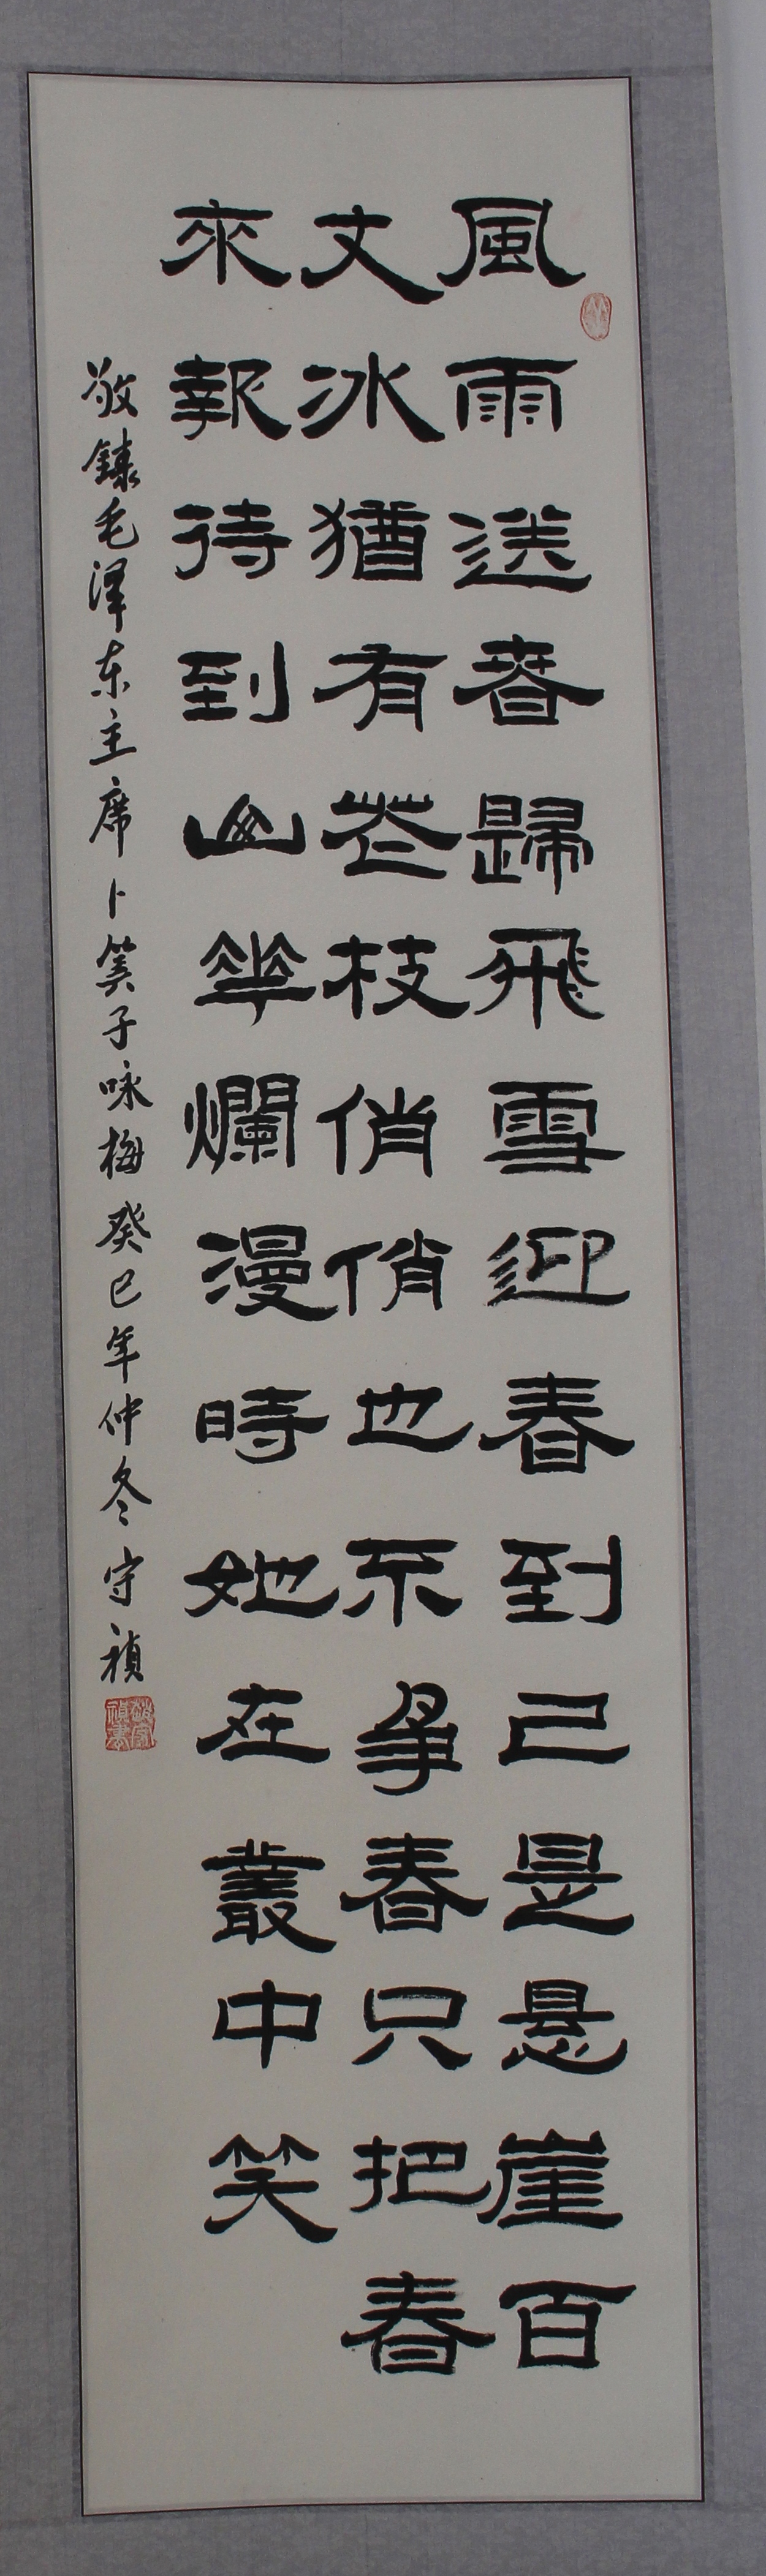 風雨送春歸飛雪迎春到已是懸崖百
丈冰猶有花枝俏俏也不爭春只把春
來報待到山華爛漫時她在叢中笑
敬錄毛泽东主席卜算子咏梅癸巳年仲冬守禎